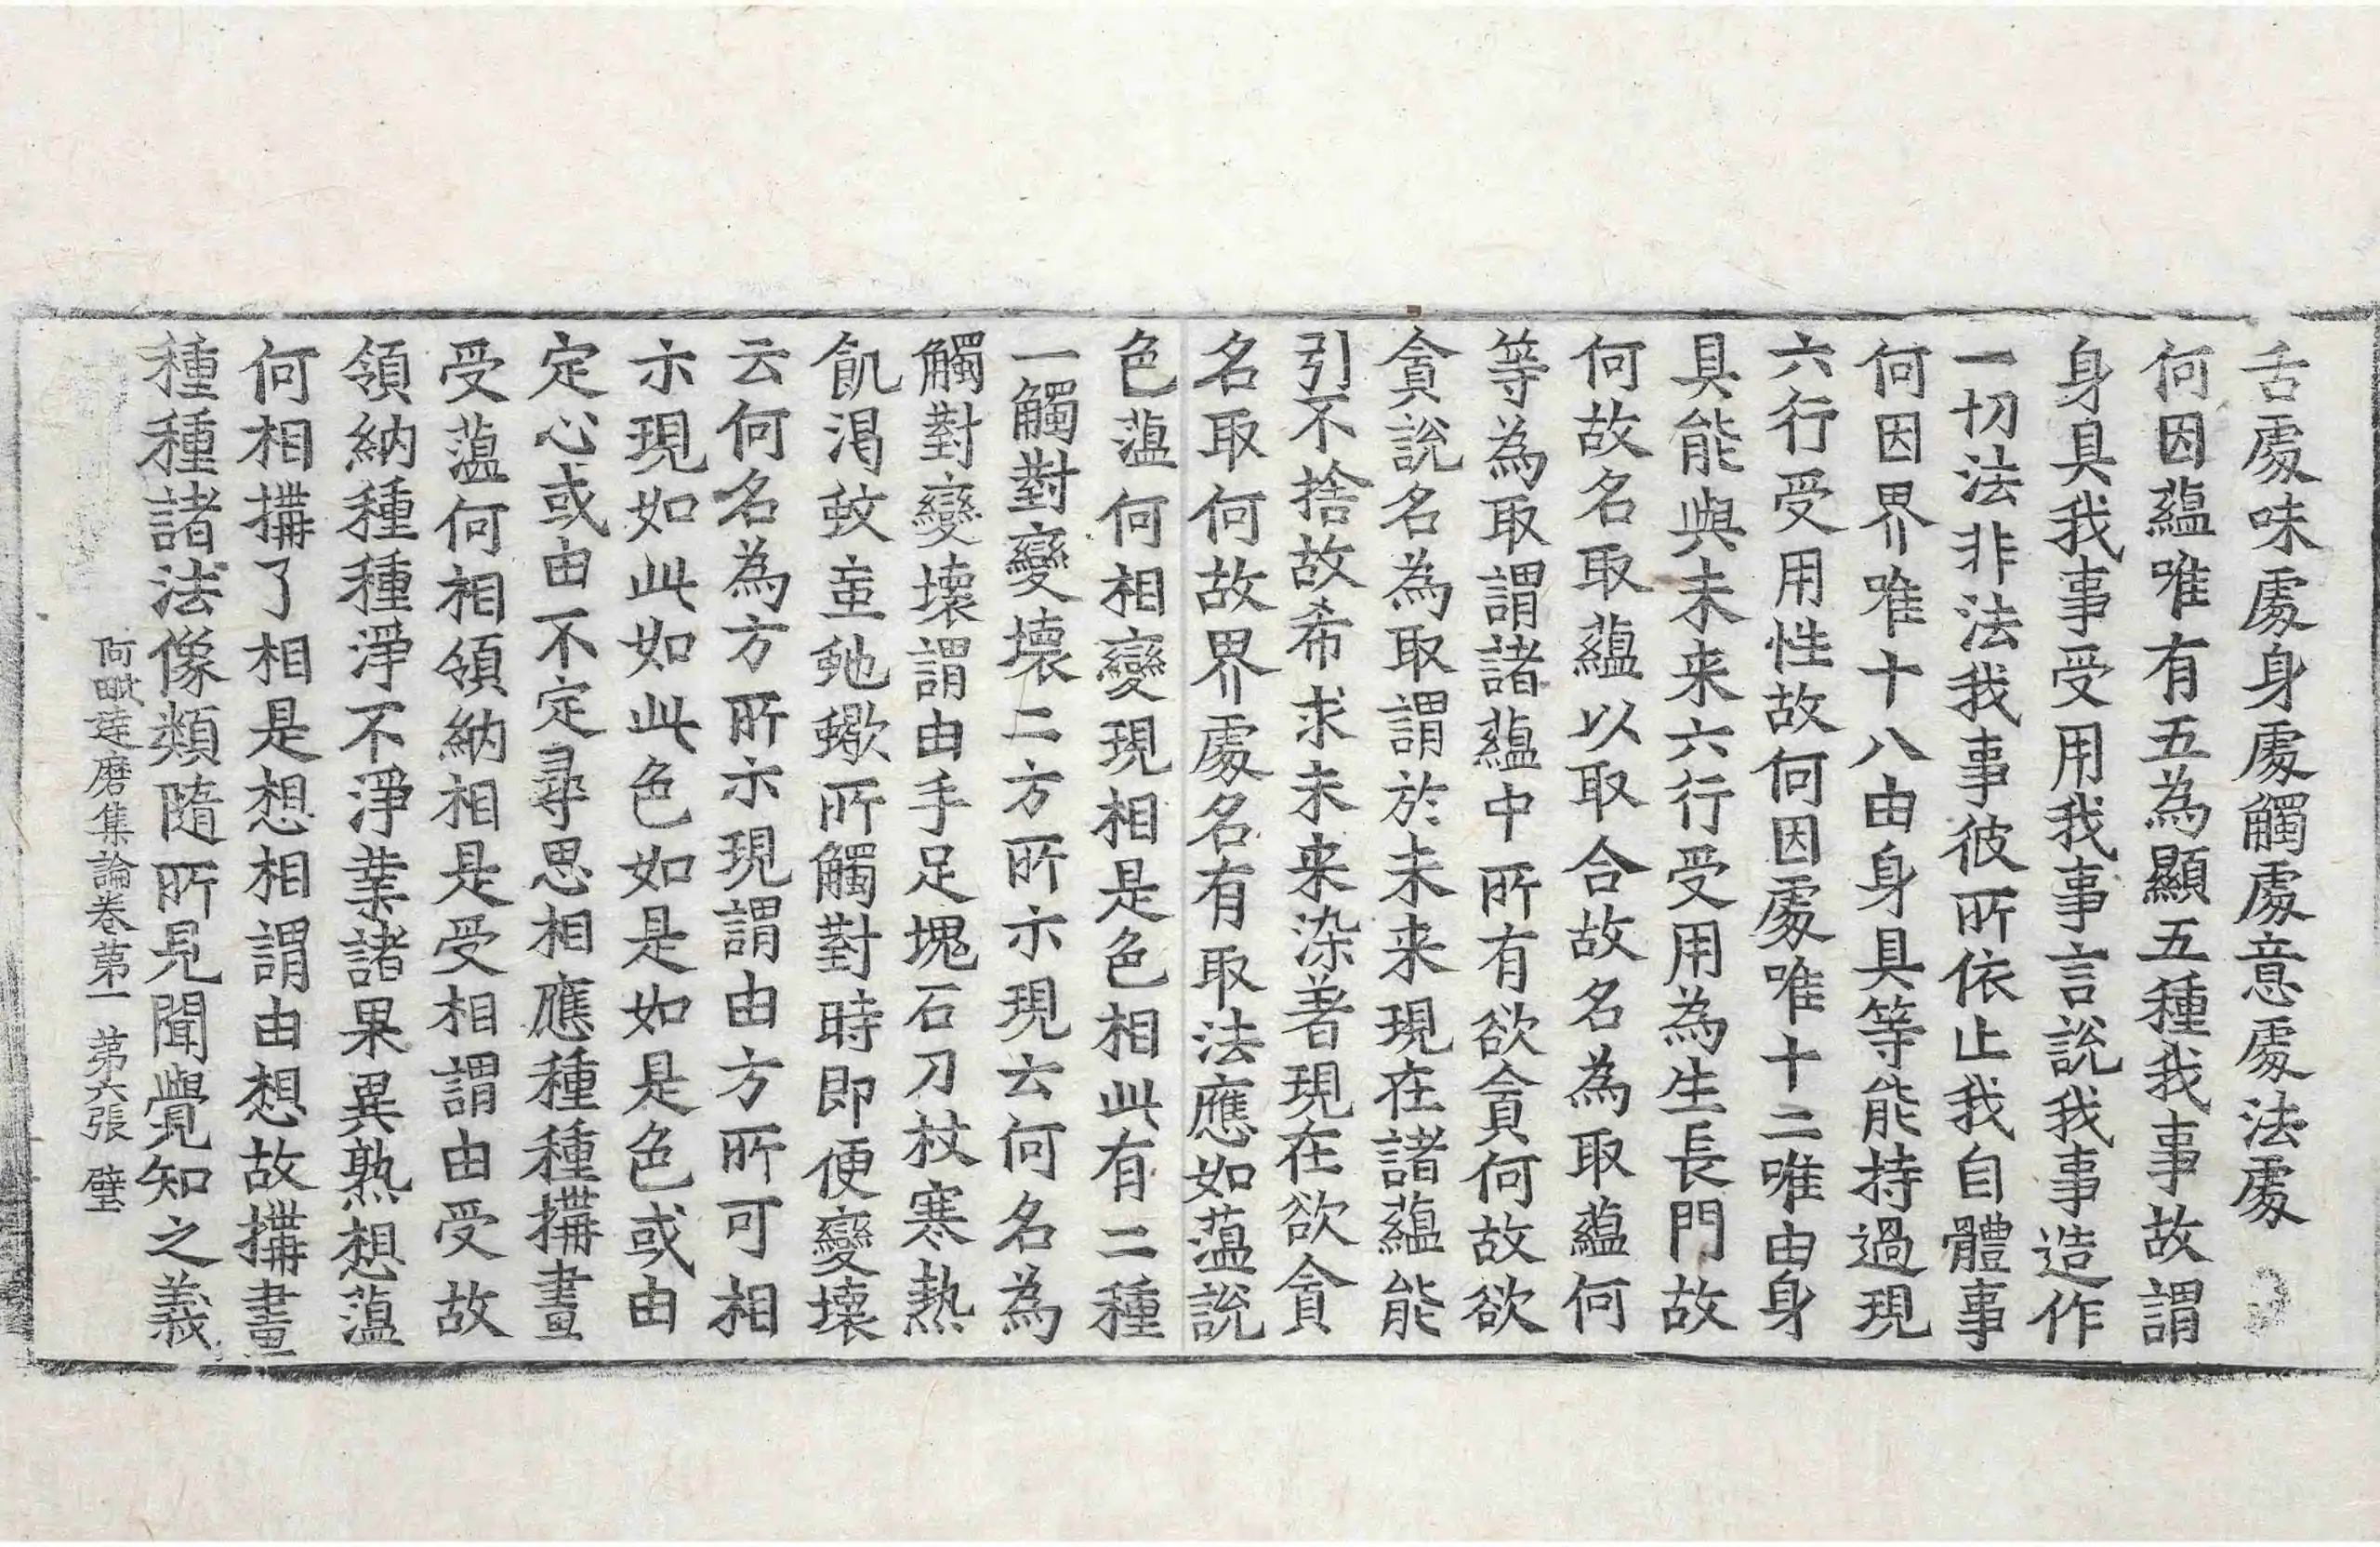 舌處味處身處觸處意處法處
何因蘊唯有五為顯五種我事故謂
身具我事受用我事言說我事造作
一切法非法我事彼所依止我自體事
何因界唯十八由身具等能持過現
六行受用性故何因處唯十二唯由身
具能與未来六行受用為生長門故
何故名取蘊以取合故名為取蘊何
等為取謂諸蘊中所有欲貪何故欲
貪說名為取謂於未来現在諸蘊能
引不捨故希求未来染著現在欲貪
名取何故界處名有取法應如薀說
色薀何相變現相是色相此有二種
一觸對變壞二方所示現云何名為
觸對變壞謂由手足塊石刀杖寒熱
飢渴蚊䖟虵蠍所觸對時即便變壞
云何名為方所示現謂由方所可相
示現如此如此色如是如是色或由
定心或由不定尋思相應種種搆畫
受薀何相領納相是受相謂由受故
領納種種淨不淨業諸果異熟想薀
何相搆了相是想相謂由想故搆畫
種種諸法像類隨所見聞覺知之義
阿毗達磨集論卷苐一 苐六張 壁